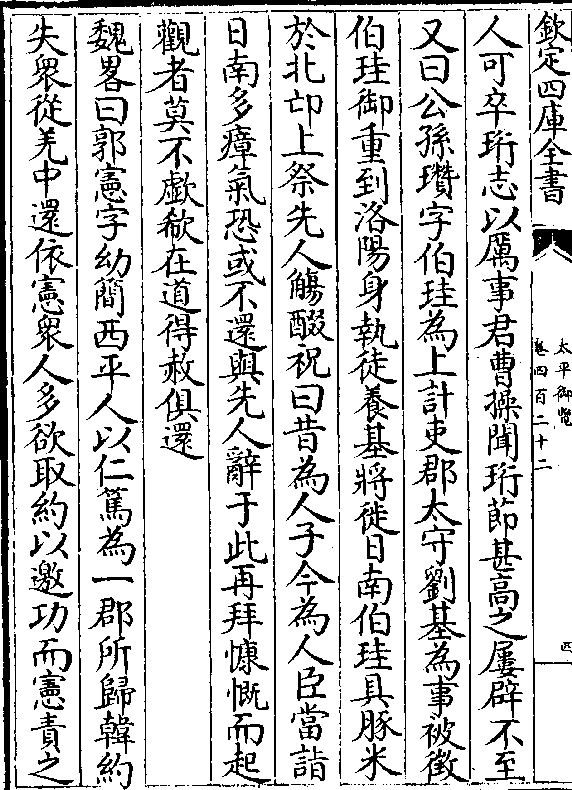 欽定四庫全書
太平御覽
卷四百二十二
四
人可卒珩志以厲事君曹操聞珩節甚高之屢辟不至
又曰公孫瓚字伯珪為上計吏郡太守劉基為事被徵
伯珪御重到洛陽身執徒養基將徙日南伯珪具豚米
於北邙上祭先人觴醊祝曰昔為人子今為人臣當詣
日南多瘴氣恐或不還與先人辭于此再拜慷慨而起
觀者莫不歔欷在道得赦俱還
魏畧曰郭憲字幼簡西平人以仁篤為一郡所歸韓約
失衆從羌中還依憲衆人多欲取約以邀功而憲責之